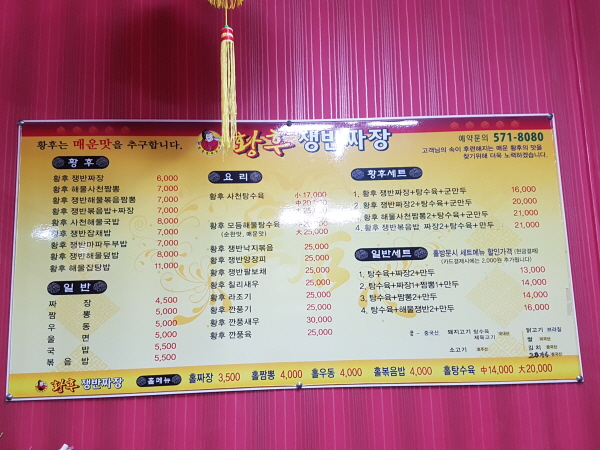 황후는 매운맛을 추구합니다.
황후 쟁반짜장
예약문의 571-8080
고객님의 속이 후련해지는 매운 황후의 맛을
찾기위해 더욱 노력하겠습니다.
황 후
황후 쟁반짜장 6,000
황후 해물사천짬뽕 7,000
황후 쟁반해물볶음짬뽕 7,000
황후 쟁반볶음밥+짜장 7,000
황후 사천해물국밥 8,000
황후 쟁반잡채밥 7,000
황후 쟁반마파두부밥 7,000
황후 쟁반해물덮밥 8,000
황후 해물잡탕밥 11,000
일 반
짜 장 4,500
짬 뽕 5,000
우 동 5,000
울 면 5,500
국 밥 5,500
볶 음 밥 5,500
요 리
황후 사천탕수육 小 17,000
中 20,000
大 25,000
황후 모듬해물탕수육 25,000
(순한맛, 매운맛) 大 25,000
황후 쟁반낙지볶음 25,000
황후 쟁반양장피 25,000
황후 쟁반팔보채 25,000
황후 칠리새우 25,000
황후 라조기 25,000
황후 깐풍기 25,000
황후 깐풍새우 30,000
황후 깐풍육 25,000
황후세트
1. 황후 쟁반짜장+탕수육+군만두 16,000
2. 황후 쟁반짜장2+탕수육+군만두 20,000
3. 황후 해물사천짬뽕2+탕수육+군만두 21,000
4. 황후 쟁반볶음밥 짜장2+탕수육+군만두 21,000
일반세트 홀방문시 세트메뉴 할인가격 (현금결제)
(카드결제시에는 2,000원 추가됩니다)
1. 탕수육+짜장2+만두 13,000
2. 탕수육+짜장1+짬뽕1+만두 14,000
3. 탕수육+짬뽕2+만두 14,000
4. 탕수육+해물쟁반2+만두 16,000
중국산 돼지고기 탕수육 제육고기
닭고기 브라질
쌀
소고기
김치
황후 쟁반짜장 홀메뉴 홀짜장 3,500 홀짬뽕 4,000 홀우동 4,000 홀볶음밥 4,000 홀탕수육 中 14,000 大 20,000